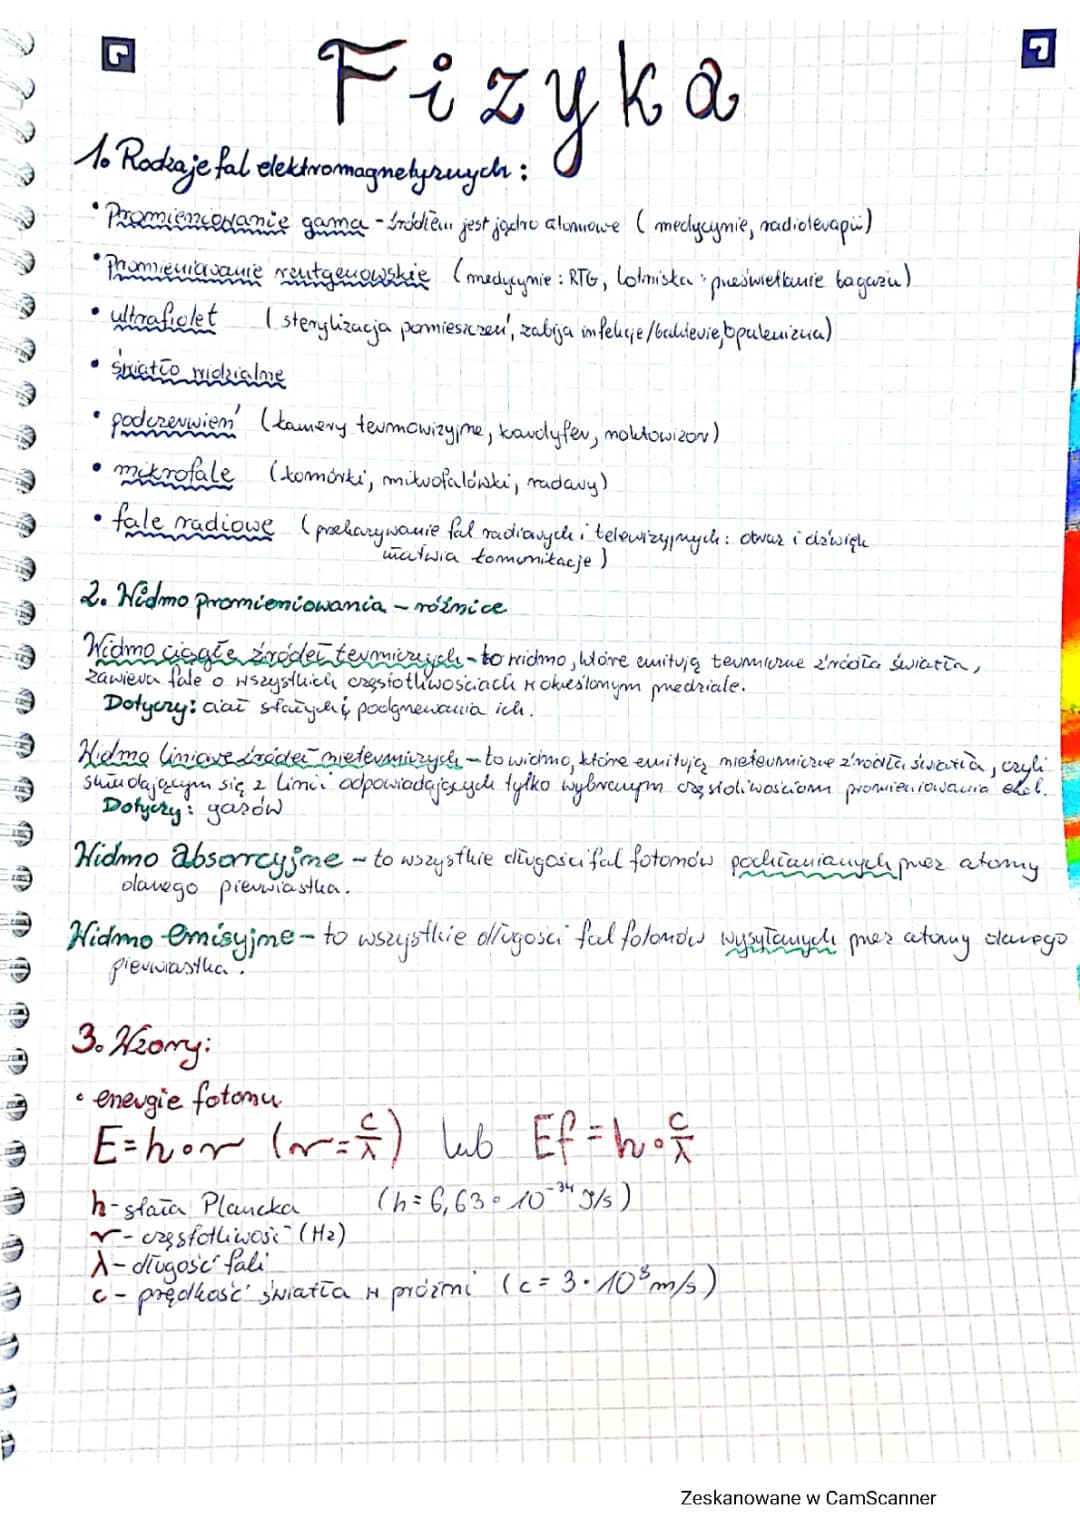 Fizyka
1. Rodzaje fal elektromagnetycznych:
• Promieniowanie gama - źródłem jest jądro atomowe (medycynie, radioterapii)
• Promieniowanie rentgenowskie (medycynie: RTG, lotniska: prześwietlanie bagażu)
• ultrafiolet (sterylizacja pomieszczeń, zabija infekcje/bakterie, opalenizna)
• światło widzialne
• podczerwień (kamery termowizyjne, kardyfer, noktowizor)
• mikrofale (komórki, mikrofalówki, radary)
• fale radiowe (przekazywanie fal radiowych i telewizyjnych: obraz i dźwięk
ułatwia komunikacje)
2. Widmo promieniowania - różnice
Widmo ciągłe źródeł termicznych - to widmo, które emitują termiczne źródła światła,
zawiera fale o wszystkich częstotliwościach w określonym przedziale.
Dotyczy: ciał stałych i podgrzewania ich.
Widmo liniowe źródeł nietermicznych - to widmo, które emitują nietermiczne źródła światła, czyli
składającym się z linii odpowiadających tylko wybranym częstotliwościom promieniowania elek.
Dotyczy: gazów
Widmo absorcyjne - to wszystkie długości fal fotonów pochłanianych przez atomy
danego pierwiastka.
Widmo emisyjne - to wszystkie długości fal fotonów wysyłanych przez atomy danego
pierwiastka.
3. Wzory:
• energie fotonu
E = h · ν (ν = c/λ) lub Ef = h · c/λ
h - stała Plancka (h = 6,63 · 10⁻³⁴ J/s)
ν - częstotliwość (Hz)
λ - długość fali
c - prędkość światła w próżni (c = 3 · 10⁸ m/s)
Zeskanowane w CamScanner